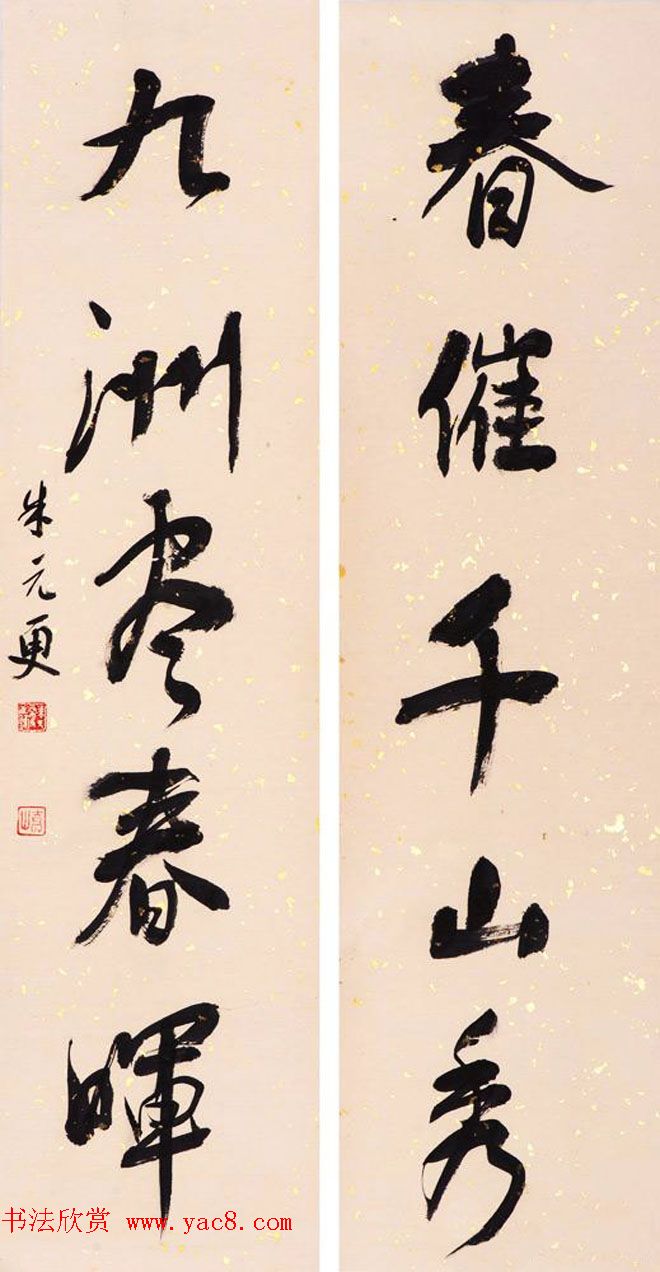 春催千山秀
九洲尽春暉
朱元更
书法欣赏 www.yac8.com